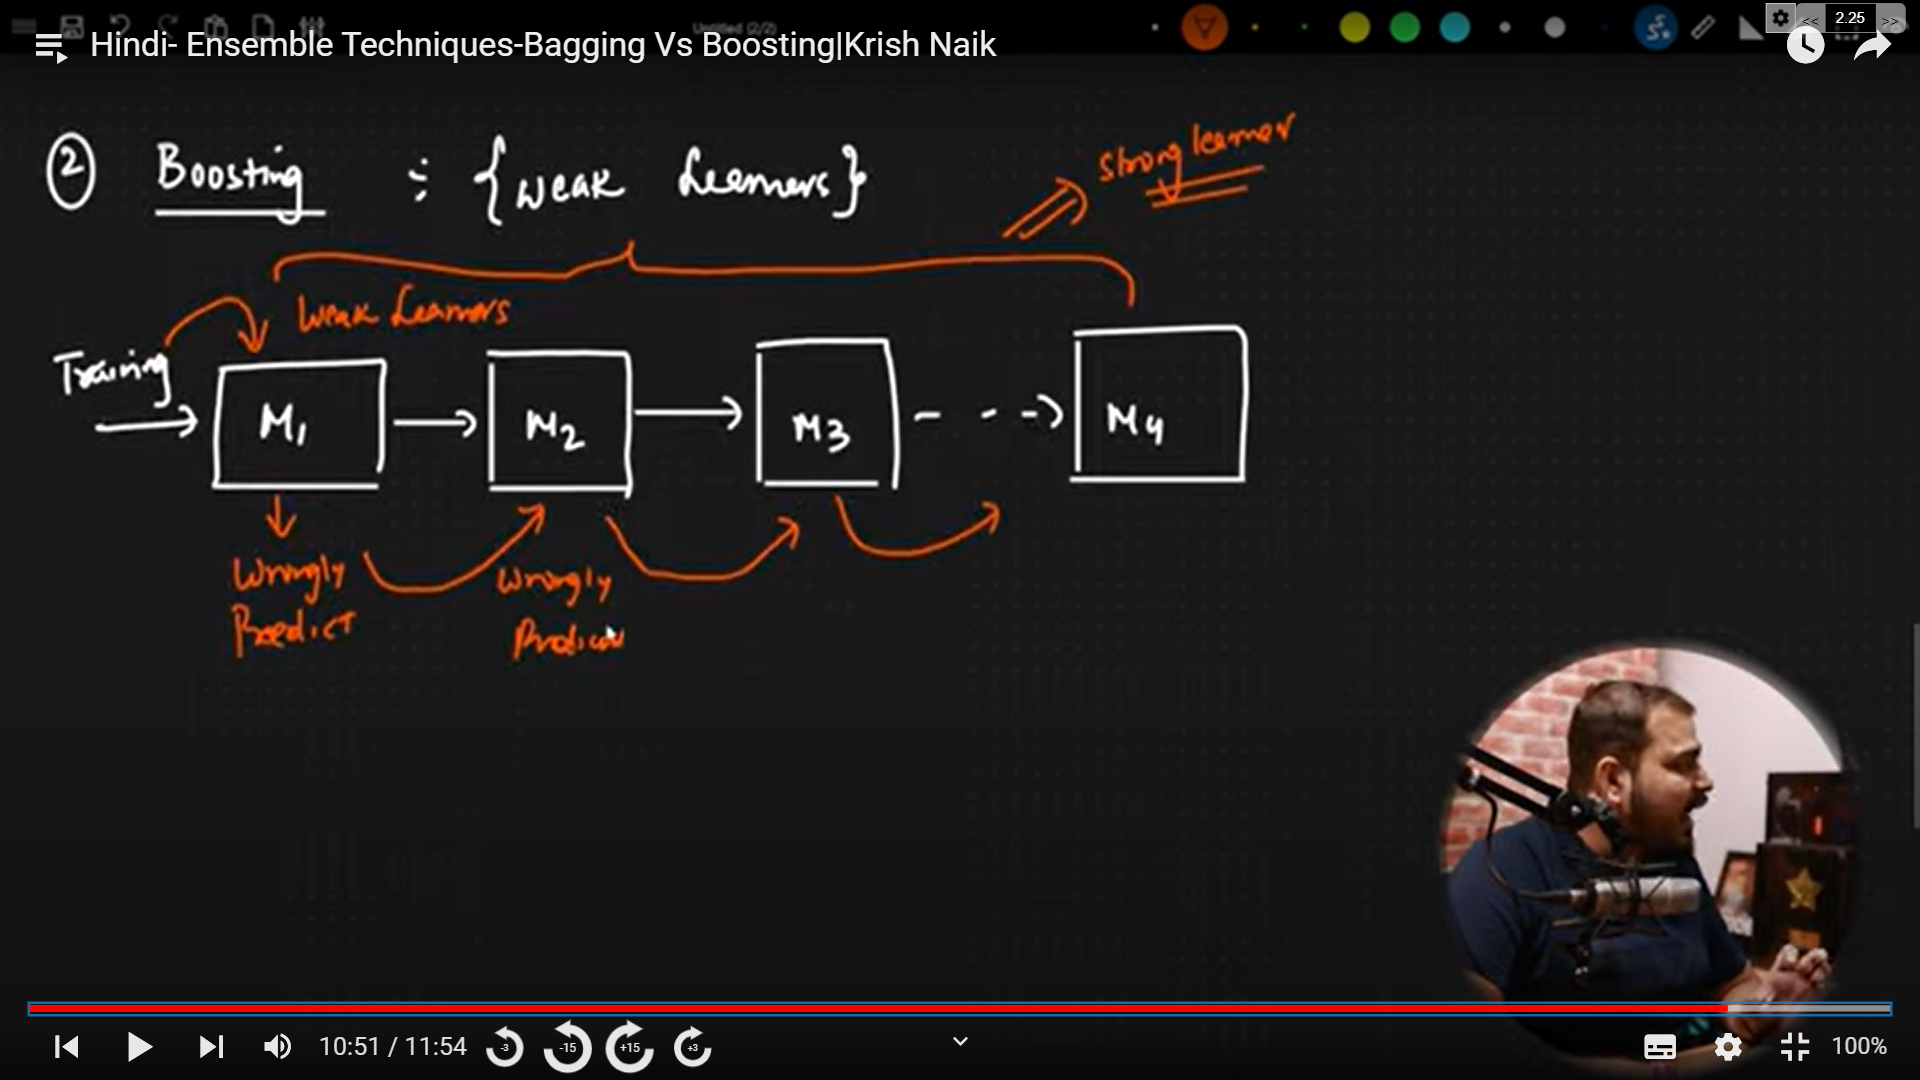 Untitled (2/2)
<< 2.25 >>
Hindi- Ensemble Techniques-Bagging Vs Boosting|Krish Naik
② Boosting : {Weak Learners}
Strong learner
Weak Learners
Training
M1 M2 M3 M4
Wrongly Predict
Wrongly
10:51 / 11:54
-3 -15 +15 +3
100%